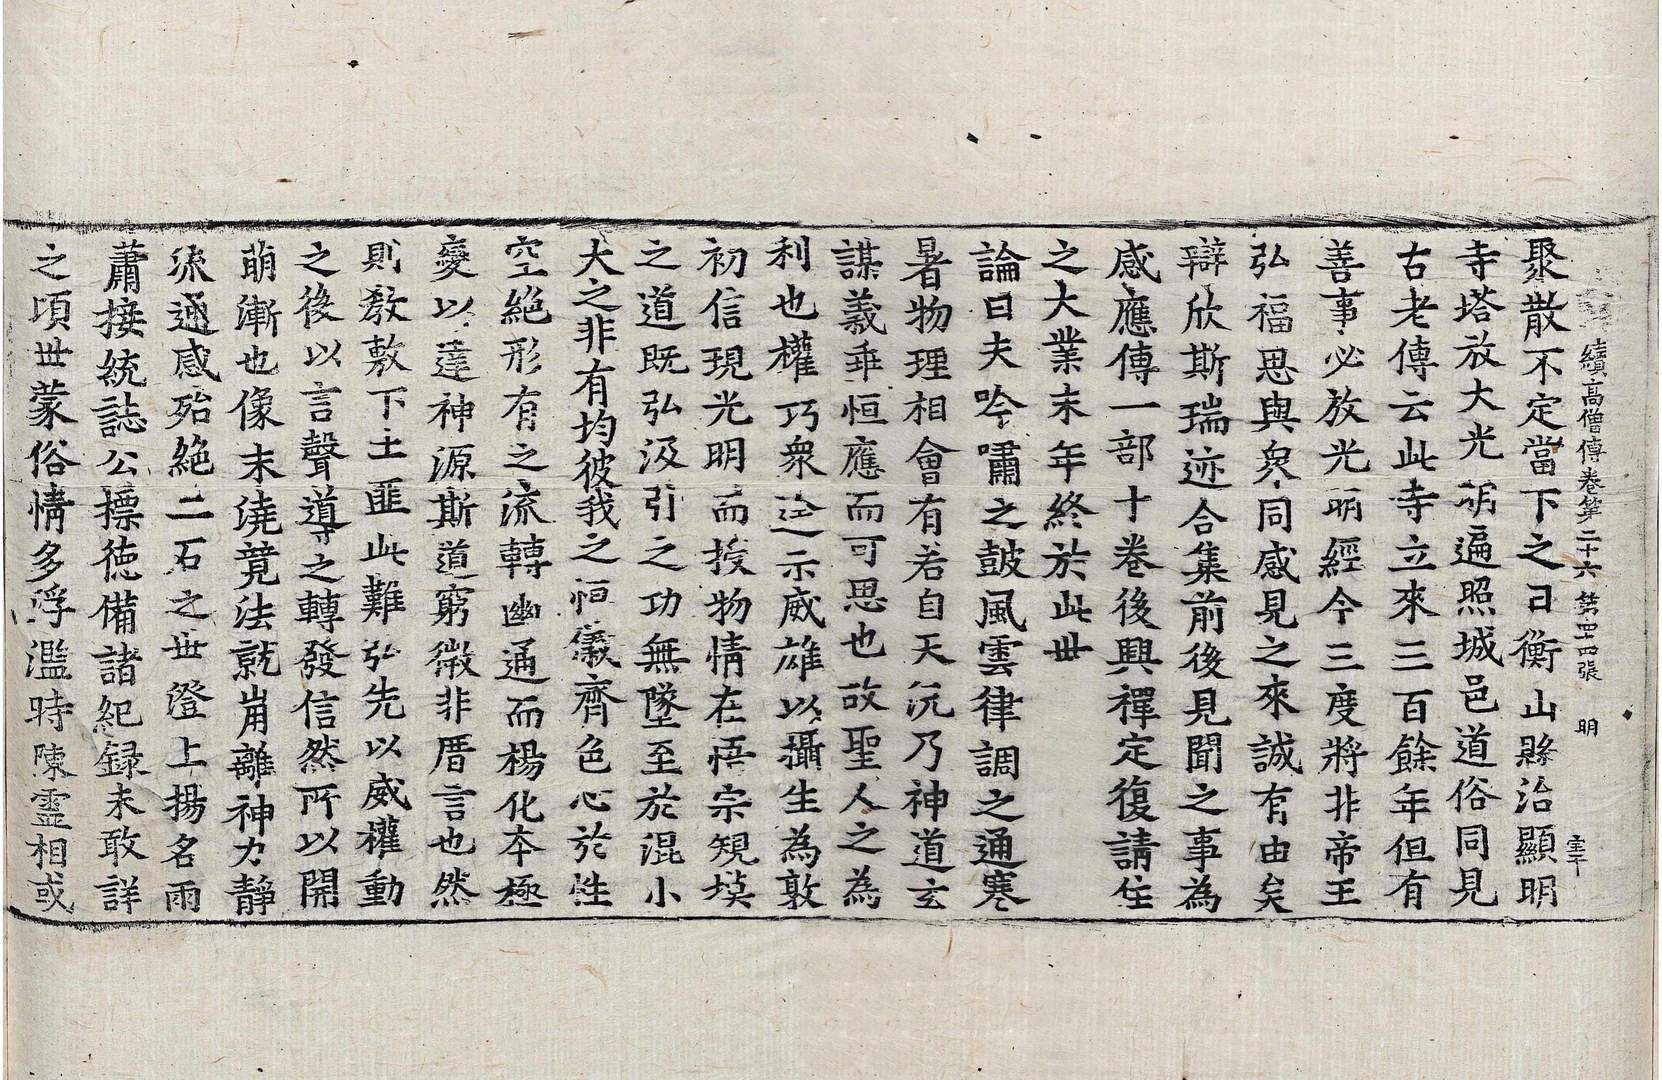 續高僧傳卷第二十六 第四十四張 明
聚散不定當下之日衡山縣治顯明
寺塔放大光明遍照城邑道俗同見
古老傳云此寺立來三百餘年但有
善事必放光明經今三度將非帝王
弘福思與衆同感見之來誠有由矣
辯欣斯瑞迹合集前後見聞之事為
感應傳一部十卷後興禪定復請住
之大業末年終於此世
論曰夫吟嘯之鼓風雲律調之通寒
暑物理相會有若自天況乃神道玄
謀義垂恒應而可思也故聖人之為
利也權巧衆逆示威雄以攝生為敦
初信現光明而授物情在悟宗規模
之道既弘汲引之功無墜至於混小
大之非有均彼我之恒儀齊色心於性
空絕形有之流轉幽通而楊化本極
變以達神源斯道窮微非厝言也然
則教敷下土匪此難弘先以威權動
之後以言聲導之轉發信然所以開
萌漸也像末澆竟法就崩離神力靜
流通感殆絕二石之世澄上揚名雨
蕭接統誌公標德備諸紀録未敢詳
之頃世蒙俗情多浮濫時陳靈相或